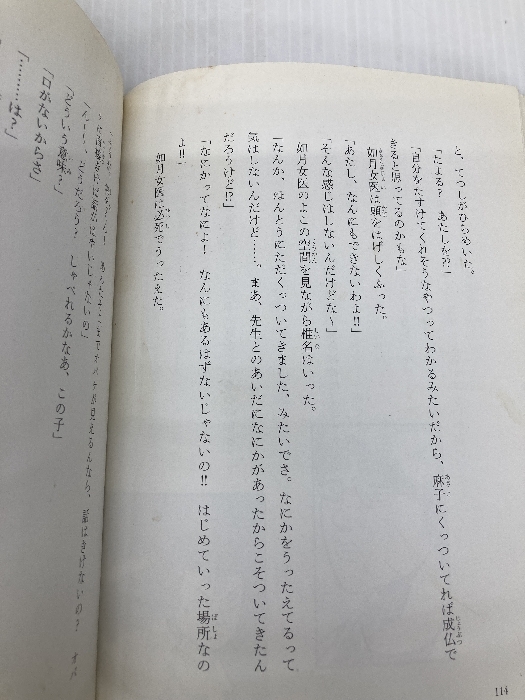 と、てつしがひらめいた。
「たよる？　あたしを？」
「自分をたすけてくれそうなやつってわかるみたいだから、麻子にくっついてれば成仏で
きると思ってるのかもな」
如月女医は頭をはげしくふった。
「あたし、なんにもできないわよ!!」
「そんな感じはしないんだけどな～」
如月女医のよこの空間を見ながら椎名はいった。
「なんか、ほんとうにただくっついてきました、みたいでさ。なにかをうったえてるって
気はしないんだけど……。まあ、先生とのあいだになにかがあったからこそついてきたん
だろうけど!?」
「なにかってなによ！　なんにもあるはずないじゃないの!!　はじめていった場所なの
よ!!」
如月女医は必死でうったえた。
114
オバケが見えるんなら、話はきけないの？
「んー、どうだろう？　しゃべれるかなあ、この子」
「どういう意味？」
「口がないからさ」
「………は？」